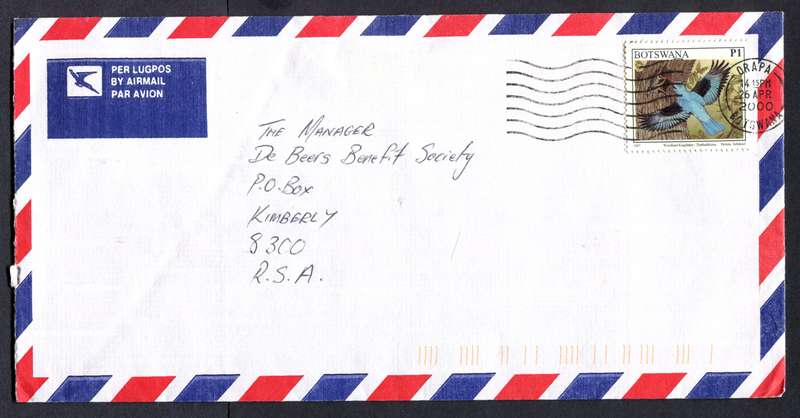 PER LUGPOS
BY AIRMAIL
PAR AVION
BOTSWANA P1
ORAPA
14 15PM
26 APR
2000
BOTSWANA
THE MANAGER
De Beers Benefit Society
P.O. Box
KIMBERLY
8300
R.S.A.
1997 Woodland Kingfisher